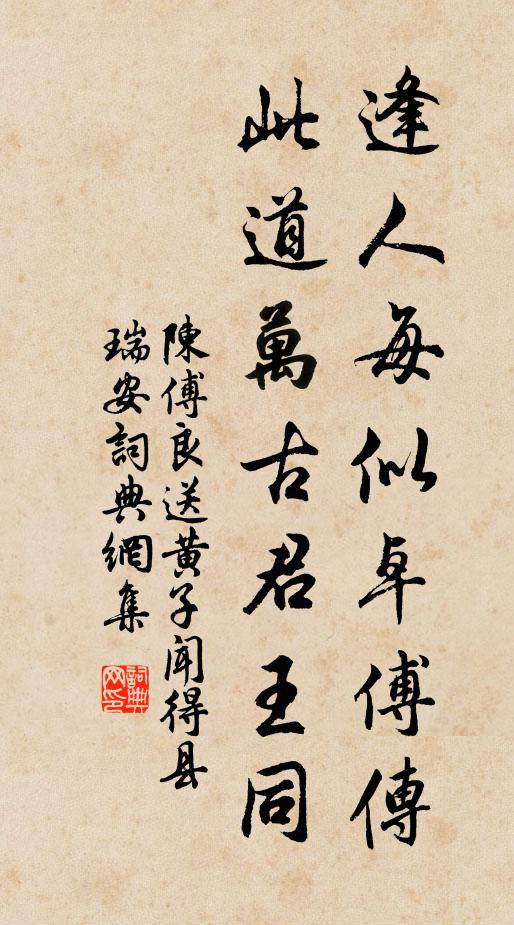 逢人每似卓傅傳
此道萬古君王同
陳傅良送黄子闻得县
瑞安詞典網集
詞典网印